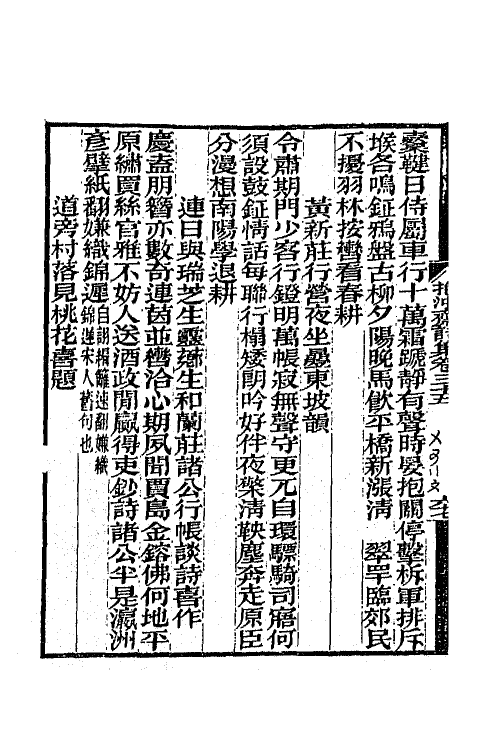 櫜鞬日侍屬車行十萬霜蹏靜有聲時晏抱關停擊柝軍排斥
堠各鳴鉦鴉盤古柳夕陽晚馬飲平橋新漲清　翠罕臨郊民
不擾羽林按轡看春耕
黃新莊行營夜坐疊東坡韻
令肅期門少客行鐙明萬帳寂無聲守更兀自環驃騎司寤何
須設鼓鉦情話每聯行榻矮朗吟好伴夜檠淸軮塵奔走原臣
分漫想南陽學退耕
連日與瑞芝生生和蘭莊諸公行帳談詩喜作
慶盍朋簪亦數奇連茵並轡洽心期夙聞賈島金鎔佛何地平
原繡買絲官雅不妨人送酒政閒贏得吏鈔詩諸公半是瀛洲
彥擘紙翻嫌織錦遲自詡報讎速翻嫌織錦遲宋人舊句也
道旁村落見桃花喜題
抱沖齋詩集卷三十五